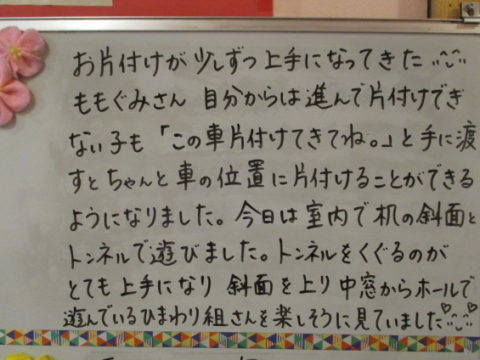 お片付けが少しずつ上手になってきた
ももぐみさん 自分からは進んで片付けでき
ない子も「この車片付けてきてね。」と手に渡
すとちゃんと車の位置に片付けることができる
ようになりました。今日は室内で机の斜面と
トンネルで遊びました。トンネルをくぐるのが
とても上手になり 斜面を上り中窓からホールで
遊んでいるひまわり組さんを楽しそうに見ていました